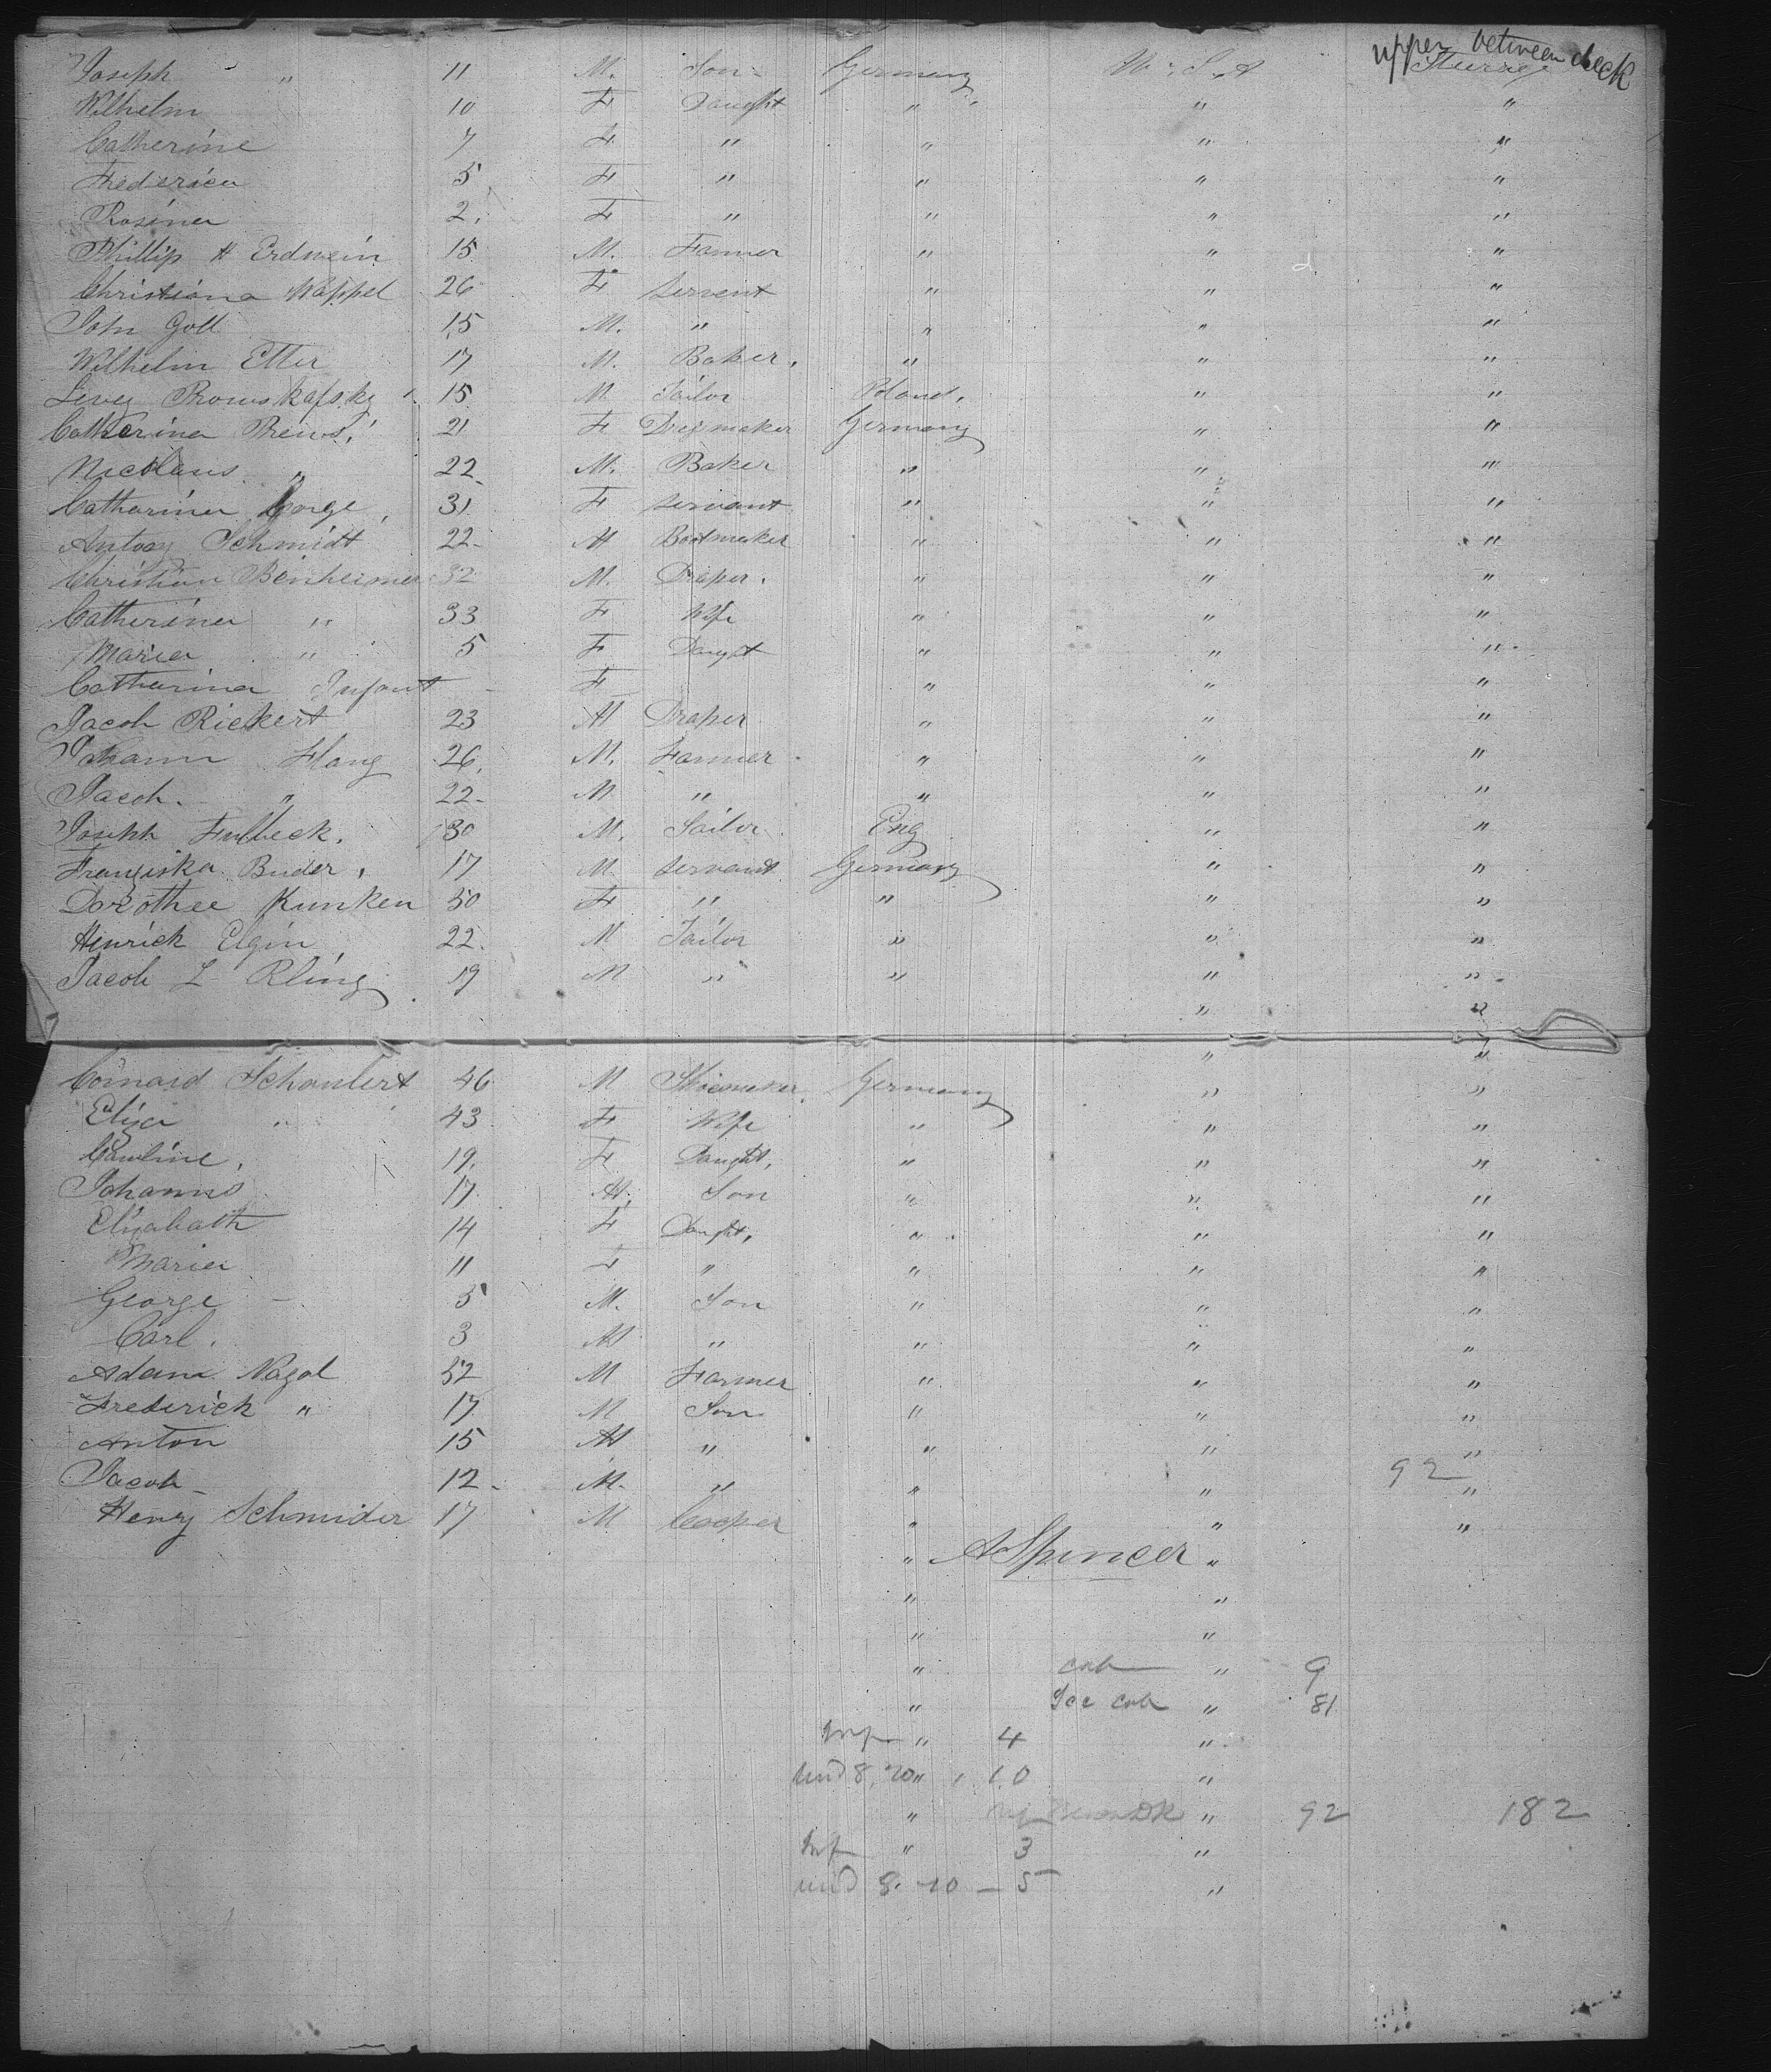 upper between deck
Joseph " 11 M. Son Germany U. S. A
Wilhelm 10 F Daught " " "
Catherine 7 F " " " "
Frederica 5 F " " " "
Rosina 2. F " " " "
Phillip H Erdwein 15 M. Farmer " " "
Christiana Nappel 26 F Servent " " "
John Goll 15 M. " " " "
Wilhelm Etter 17 M. Baker. " " "
Levey 15 M Tailor Poland. " "
Catherina 21 F Dresmaker Germany " "
Nicolaus " 22 M. Baker " " "
Catharina George 31 F Servant " " "
Antony Schmidt 22 M Bootmaker " " "
Christian Benheimer 32 M. Draper. " " "
Catherina " 33 F Wife " " "
Maria " 5 F Daught " " "
Catharina Infant - F " " "
Jacob Rickert 23 M Draper " " "
Johann Hang 26 M. Farmer " " "
Jacob. " 22 M " " " "
Joseph Fulbeck. 30 M. Tailor Eng " "
Franziska Buder. 17 M. Servant Germany " "
Dorothee Kunken 50 F " " " "
Henrick Elgin 22. M Tailor " " "
Jacob L Kling 19 M " " " "
" "
" "
Connard Schaubert 46 M Germany " "
Eliza " 43 F Wife " " "
Caroline. 19. F Daught. " " "
Johannes 17 M. Son " " "
Elizabath 14 F Daught. " " "
Maria 11 F " " " "
George - 5 M. Son " " "
Carl. 3 M " " " "
Adam Nagal 52 M Farmer " " "
Frederick " 17 M Son " " "
Anton 15 M " " " "
92
Jacob 12 M. " " " "
Henry Schmider 17 M Cooper " " "
" A Spencer "
" "
" "
" cab " 9
" Sec cab " 81
Inf " 4 "
und 8. " 10 "
" " 92 182
Inf " 3 "
und 8. 10 - 5 "